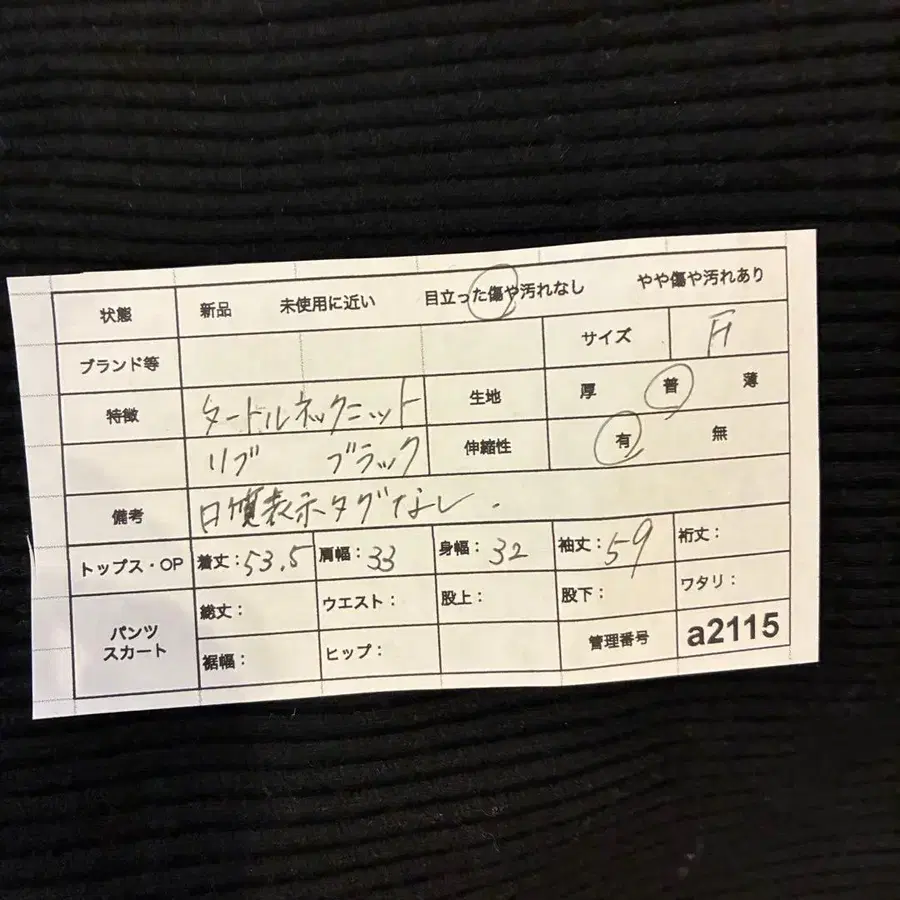 状態 新品 未使用に近い 目立った傷や汚れなし やや傷や汚れあり
ブランド等 サイズ F
特徴 タートルネックニット 生地 厚 普 薄
リブ ブラック 伸縮性 有 無
備考 品質表示タグなし.
トップス・OP 着丈:53.5 肩幅:33 身幅:32 袖丈:59 裄丈:
パンツ スカート 総丈: ウエスト: 股上: 股下: ワタリ:
裾幅: ヒップ: 管理番号 a2115